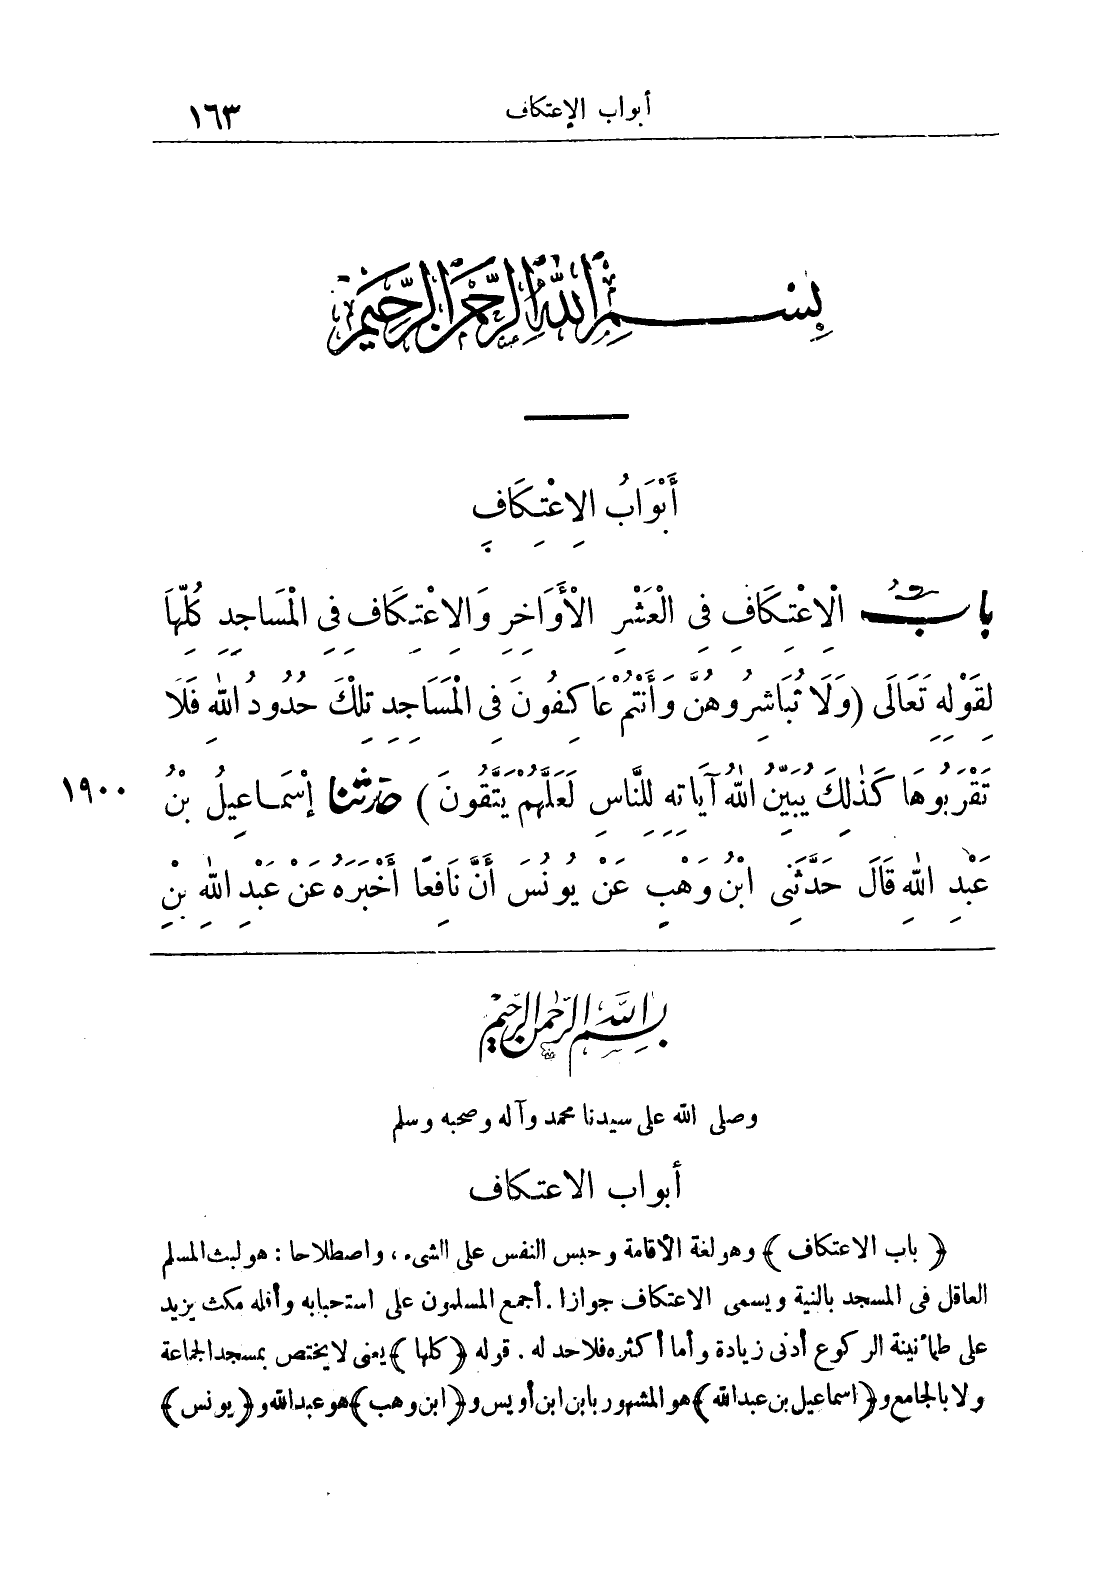 أبواب الإعتكاف ١٦٣
بِسْمِ اللهِ الرَّحْمَنِ الرَّحِيمِ
أَبْوَابُ الِاعْتِكَافِ
بَابُ الِاعْتِكَافِ فِي الْعَشْرِ الْأَوَاخِرِ وَالِاعْتِكَافِ فِي الْمَسَاجِدِ كُلِّهَا
لِقَوْلِهِ تَعَالَى (وَلَا تُبَاشِرُوهُنَّ وَأَنْتُمْ عَاكِفُونَ فِي الْمَسَاجِدِ تِلْكَ حُدُودُ اللهِ فَلَا
تَقْرَبُوهَا كَذَلِكَ يُبَيِّنُ اللهُ آيَاتِهِ لِلنَّاسِ لَعَلَّهُمْ يَتَّقُونَ) حدثنا إِسْمَاعِيلُ بْنُ ١٩٠٠
عَبْدِ اللهِ قَالَ حَدَّثَنِي ابْنُ وَهْبٍ عَنْ يُونُسَ أَنَّ نَافِعًا أَخْبَرَهُ عَنْ عَبْدِ اللهِ بْنِ
بسم الله الرحمن الرحيم
وصلى الله على سيدنا محمد وآله وصحبه وسلم
أبواب الاعتكاف
﴿باب الاعتكاف﴾ وهو لغة الأقامة وحبس النفس على الشيء، واصطلاحا: هو لبث المسلم
العاقل في المسجد بالنية ويسمى الاعتكاف جوازا. أجمع المسلمون على استحبابه وأقله مكث يزيد
على طمأنينة الركوع أدنى زيادة وأما أكثره فلا حد له. قوله ﴿كلها﴾ يعنى لا يختص بمسجد الجماعة
ولا بالجامع و﴿اسماعيل بن عبد الله﴾ هو المشهور بابن ابن أويس و﴿ابن وهب﴾ هو عبد الله و﴿يونس﴾